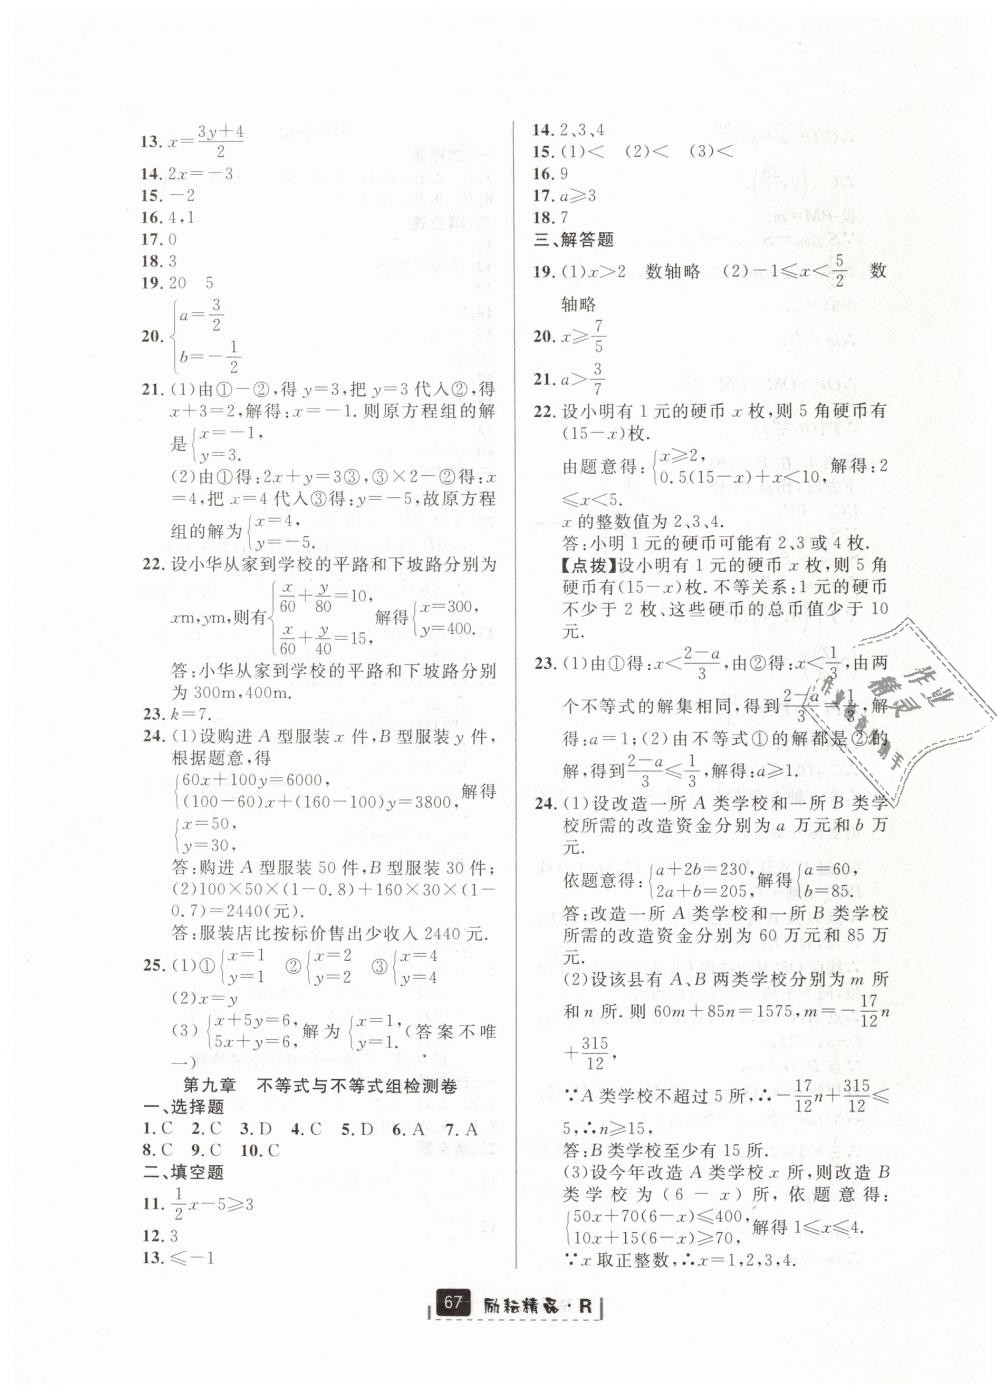 13. x=\frac{3y+4}{2}
14. 2x=-3
15. -2
16. 4,1
17. 0
18. 3
19. 20 5
20. {a=\frac{3}{2}
b=-\frac{1}{2}
21. (1)由①-②,得 y=3,把 y=3 代入②,得
x+3=2,解得:x=-1.则原方程组的解
是{x=-1,
y=3.
(2)由①得:2x+y=3③,③×2-②得:x
=4,把 x=4 代入③得:y=-5,故原方程
组的解为{x=4,
y=-5.
22. 设小华从家到学校的平路和下坡路分别为
xm,ym,则有{\frac{x}{60}+\frac{y}{80}=10,
\frac{x}{60}+\frac{y}{40}=15, 解得{x=300,
y=400.
答:小华从家到学校的平路和下坡路分别
为 300m,400m.
23. k=7.
24. (1)设购进 A 型服装 x 件,B 型服装 y 件,
根据题意,得
{60x+100y=6000,
(100-60)x+(160-100)y=3800, 解得
{x=50,
y=30,
答:购进 A 型服装 50 件,B 型服装 30 件;
(2)100×50×(1-0.8)+160×30×(1-
0.7)=2440(元).
答:服装店比按标价售出少收入 2440 元.
25. (1)①{x=1
y=1 ②{x=2
y=2 ③{x=4
y=4
(2)x=y
(3){x+5y=6,
5x+y=6, 解为{x=1,
y=1. (答案不唯
一)
第九章 不等式与不等式组检测卷
一、选择题
1. C 2. C 3. D 4. C 5. D 6. A 7. A
8. C 9. C 10. C
二、填空题
11. \frac{1}{2}x-5≥3
12. 3
13. ≤-1
14. 2、3、4
15. (1)< (2)< (3)<
16. 9
17. a≥3
18. 7
三、解答题
19. (1)x>2 数轴略 (2)-1≤x<\frac{5}{2} 数
轴略
20. x≥\frac{7}{5}
21. a>\frac{3}{7}
22. 设小明有 1 元的硬币 x 枚,则 5 角硬币有
(15-x)枚.
由题意得:{x≥2,
0.5(15-x)+x<10, 解得:2
≤x<5.
x 的整数值为 2、3、4.
答:小明 1 元的硬币可能有 2、3 或 4 枚.
【点拨】设小明有 1 元的硬币 x 枚,则 5 角
硬币有(15-x)枚.不等关系:1 元的硬币
不少于 2 枚、这些硬币的总币值少于 10
元.
23. (1)由①得:x<\frac{2-a}{3},由②得:x<\frac{1}{3},由两
个不等式的解集相同,得到\frac{2-a}{3}=\frac{1}{3},解
得:a=1;(2)由不等式①的解都是②的
解,得到\frac{2-a}{3}≤\frac{1}{3},解得:a≥1.
24. (1)设改造一所 A 类学校和一所 B 类学
校所需的改造资金分别为 a 万元和 b 万
元.
依题意得:{a+2b=230,
2a+b=205, 解得{a=60,
b=85.
答:改造一所 A 类学校和一所 B 类学校
所需的改造资金分别为 60 万元和 85 万
元.
(2)设该县有 A、B 两类学校分别为 m 所
和 n 所.则 60m+85n=1575,m=-\frac{17}{12}n
+\frac{315}{12},
∵A 类学校不超过 5 所,∴-\frac{17}{12}n+\frac{315}{12}≤
5,∴n≥15,
答:B 类学校至少有 15 所.
(3)设今年改造 A 类学校 x 所,则改造 B
类学校为(6-x)所,依题意得:
{50x+70(6-x)≤400,
10x+15(6-x)≥70, 解得 1≤x≤4.
∵x 取正整数,∴x=1,2,3,4.
67 励耘精品·R
作业
精灵